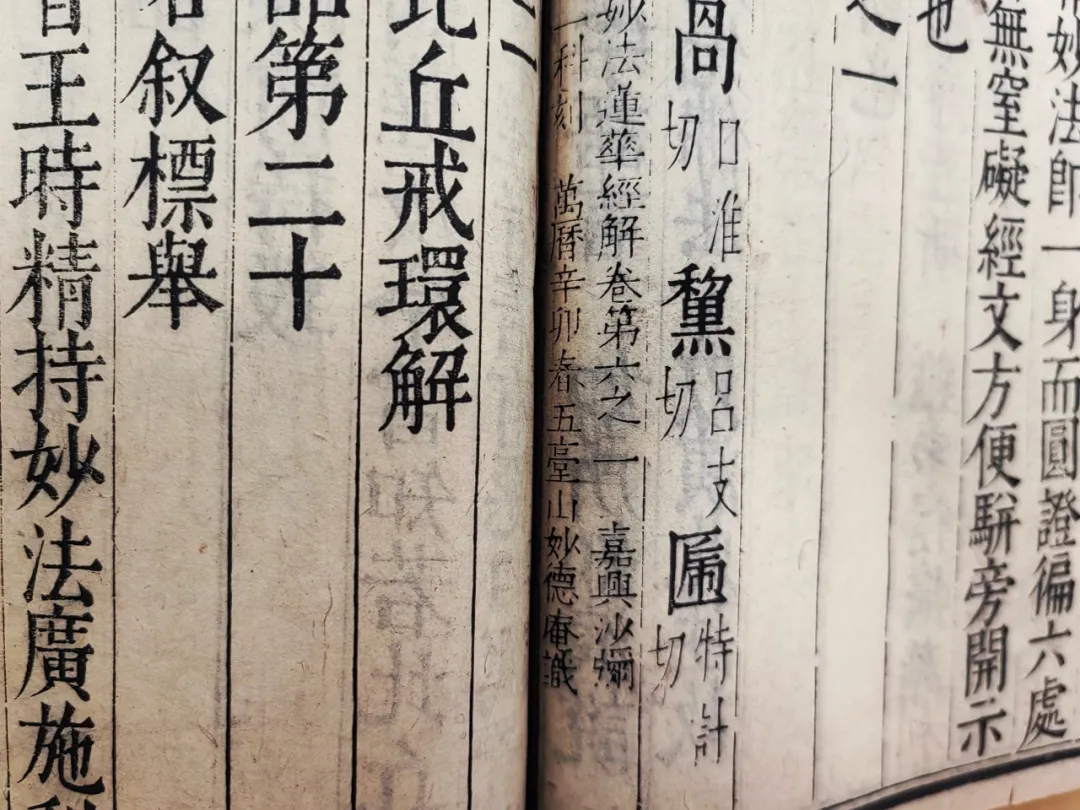 妙法師一身而圓證徧六處
無窒礙經文方便駢旁開示
也
之一
咼口淮切 黧呂支切 匾特計切
妙法蓮華經解卷第六之一 嘉興沙彌
一科刻 萬曆辛卯春五臺山妙德庵識
之一
比丘戒環解
品第二十
名叙標舉
音王時精持妙法廣施